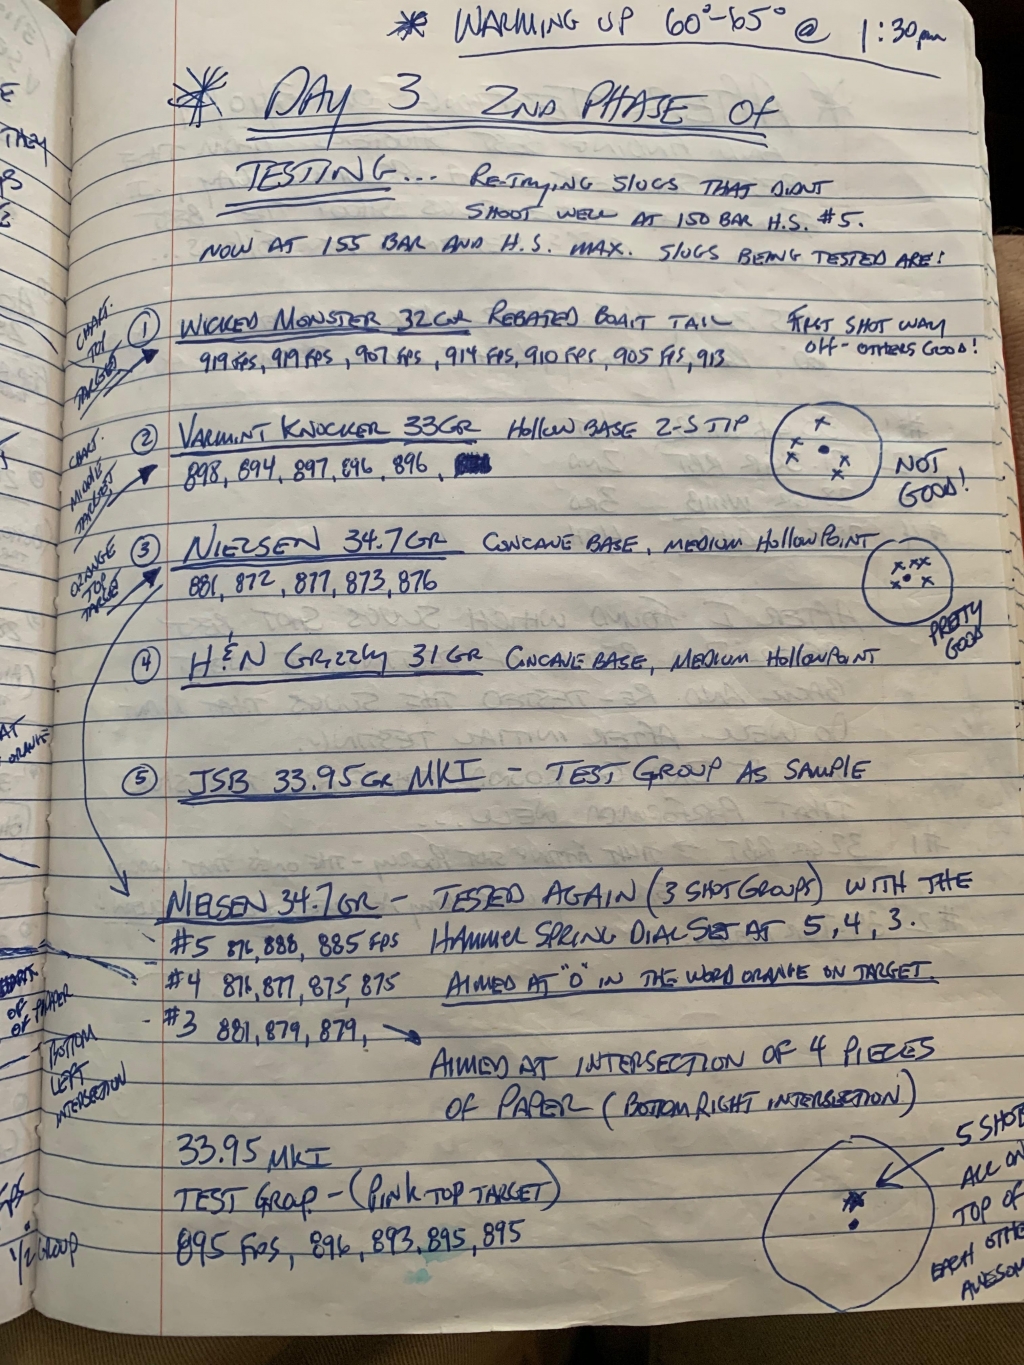 * WARMING UP 60°-65° @ 1:30pm
* DAY 3 2ND PHASE OF
TESTING... RE-TRYING SLUGS THAT DIDNT
SHOOT WELL AT 150 BAR H.S. #5.
NOW AT 155 BAR AND H.S. MAX. SLUGS BEING TESTED ARE!
CHART. TOP TARGET
① WICKED MONSTER 32GR REBATED BOAT TAIL
FIRST SHOT WAY
OFF - OTHERS GOOD!
919 FPS, 919 FPS, 907 FPS, 914 FPS, 910 FPS, 905 FPS, 913
CHART. MIDDLE TARGET
② VARMINT KNOCKER 33GR HOLLOW BASE 2-S TIP
898, 894, 897, 896, 896,
NOT
GOOD!
ORANGE TOP TARGET
③ NIELSEN 34.7GR CONCAVE BASE, MEDIUM HOLLOWPOINT
881, 872, 877, 873, 876
PRETTY
GOOD
④ H&N GRIZZLY 31GR CONCAVE BASE, MEDIUM HOLLOWPOINT
⑤ JSB 33.95GR MKI - TEST GROUP AS SAMPLE
NIELSEN 34.7GR - TESTED AGAIN (3 SHOT GROUPS) WITH THE
#5 876, 888, 885 FPS HAMMER SPRING DIAL SET AT 5, 4, 3.
#4 876, 877, 875, 875 AIMED AT "O" IN THE WORD ORANGE ON TARGET.
#3 881, 879, 879,
AIMED AT INTERSECTION OF 4 PIECES
OF PAPER (BOTTOM RIGHT INTERSECTION)
OF PAPER
BOTTOM
LEFT
INTERSECTION
33.95 MKI
TEST GROUP - (PINK TOP TARGET)
895 FPS, 896, 893, 895, 895
5 SHOT
ALL ON
TOP OF
EACH OTHE
AWESOM
THEY
AT
ORANGE
FPS
1/2 GROUP